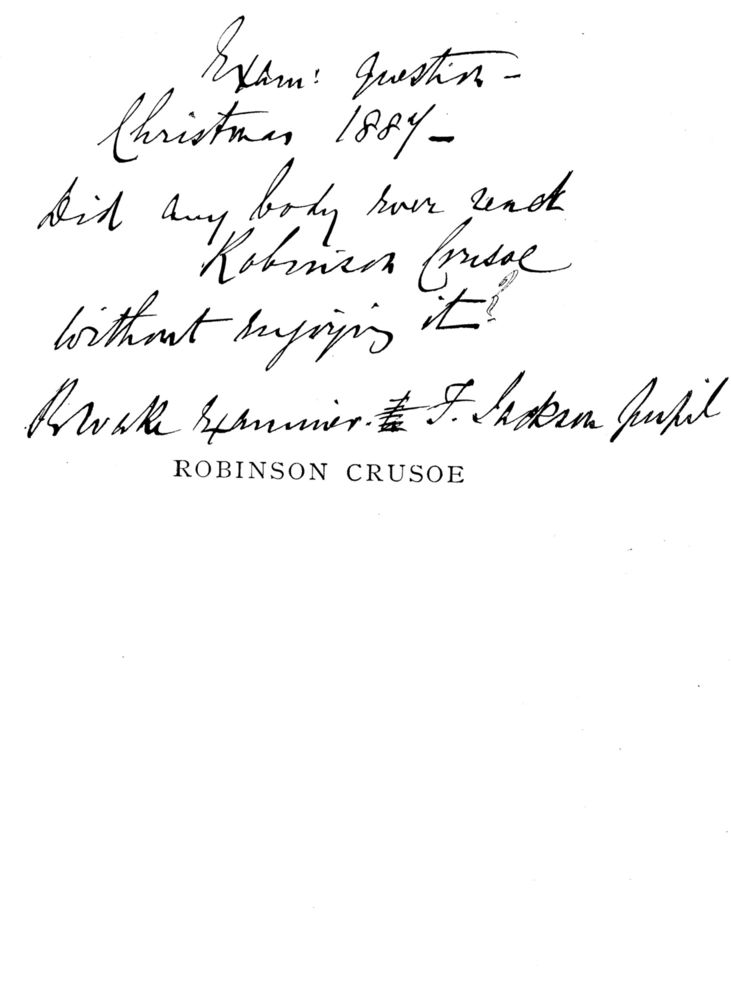 Exam: question –
Christmas 1887 –
Did any body ever read
Robinson Crusoe
without enjoying it?
Examiner. F. Jackson pupil
ROBINSON CRUSOE